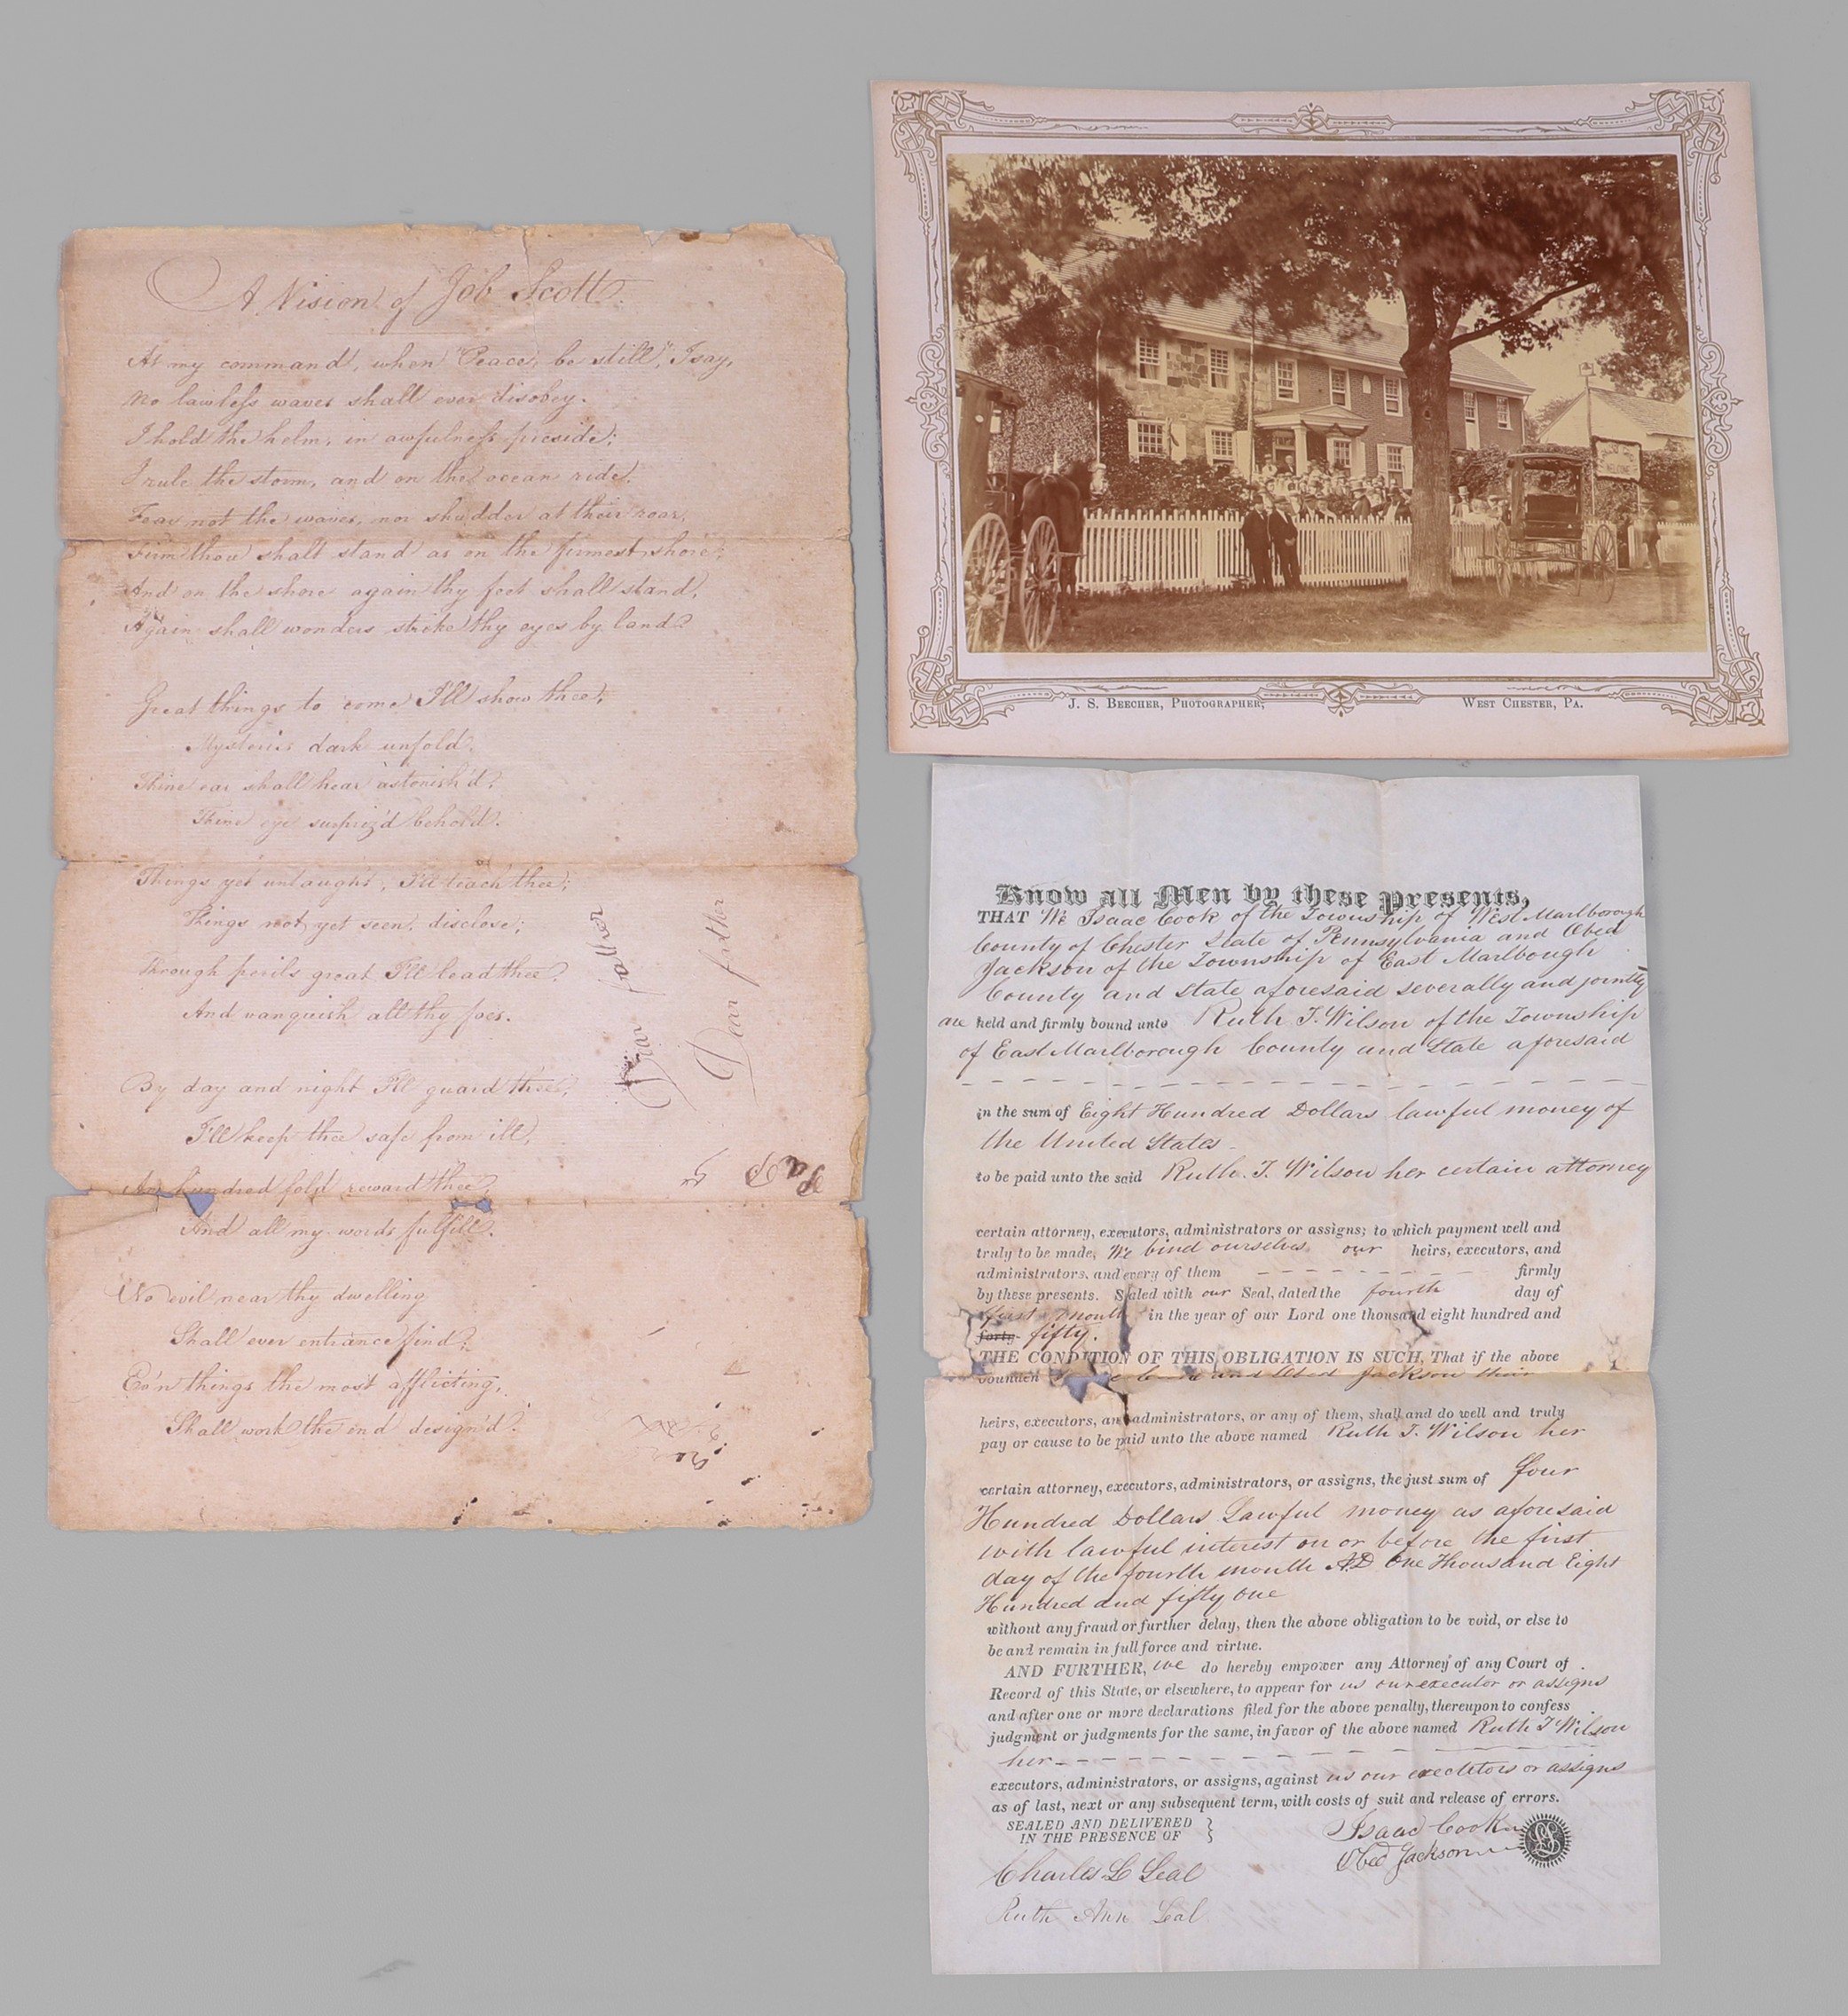 A Vision of Job Scott.
At my command, when "Peace, be still", I say,
No lawless waves shall ever disobey.
I hold the helm, in awfulness preside;
I rule the storm, and on the ocean ride.
Fear not the waves, nor shudder at their roar,
Firm thou shalt stand as on the firmest shore;
And on the shore again thy feet shall stand,
Again shall wonders strike thy eyes by land.
Great things to come I'll show thee,
Mysteries dark unfold.
Thine ear shall hear astonish'd,
Thine eye surpriz'd behold.
Things yet untaught, I'll teach thee;
Things not yet seen, disclose;
Through perils great I'll lead thee,
And vanquish all thy foes.
By day and night I'll guard thee,
I'll keep thee safe from ill,
An hundred fold reward thee,
And all my words fulfill.
No evil near thy dwelling
Shall ever entrance find;
Ev'n things the most afflicting,
Shall work the end design'd.
Dear father
Dear father
WELCOME
J. S. BEECHER, PHOTOGRAPHER,
WEST CHESTER, PA.
Know all Men by these Presents,
THAT We Isaac Cook of the Township of West Marlborough
County of Chester State of Pennsylvania and Obed
Jackson of the Township of East Marlbough
County and State aforesaid severally and jointly
are held and firmly bound unto Ruth T. Wilson of the Township
of East Marlborough County and State aforesaid
in the sum of Eight Hundred Dollars lawful money of
the United States
to be paid unto the said Ruth. T. Wilson her certain attorney
certain attorney, executors, administrators or assigns; to which payment well and
truly to be made, We bind ourselves our heirs, executors, and
administrators, and every of them firmly
by these presents. Sealed with our Seal, dated the fourth day of
first month in the year of our Lord one thousand eight hundred and
forty fifty.
THE CONDITION OF THIS OBLIGATION IS SUCH, That if the above
bounden and Obed Jackson their
heirs, executors, and administrators, or any of them, shall and do well and truly
pay or cause to be paid unto the above named Ruth T. Wilson her
certain attorney, executors, administrators, or assigns, the just sum of four
Hundred Dollars Lawful money as aforesaid
with lawful interest on or before the first
day of the fourth month AD One Thousand Eight
Hundred and fifty one
without any fraud or further delay, then the above obligation to be void, or else to
be and remain in full force and virtue.
AND FURTHER, we do hereby empower any Attorney of any Court of
Record of this State, or elsewhere, to appear for us our executor or assigns
and after one or more declarations filed for the above penalty, thereupon to confess
judgment or judgments for the same, in favor of the above named Ruth T Wilson
her
executors, administrators, or assigns, against us our exectetors or assigns
as of last, next or any subsequent term, with costs of suit and release of errors.
SEALED AND DELIVERED
IN THE PRESENCE OF
Isaac Cook
Obed Jackson
LS
Charles L Seal
Ruth Ann Seal